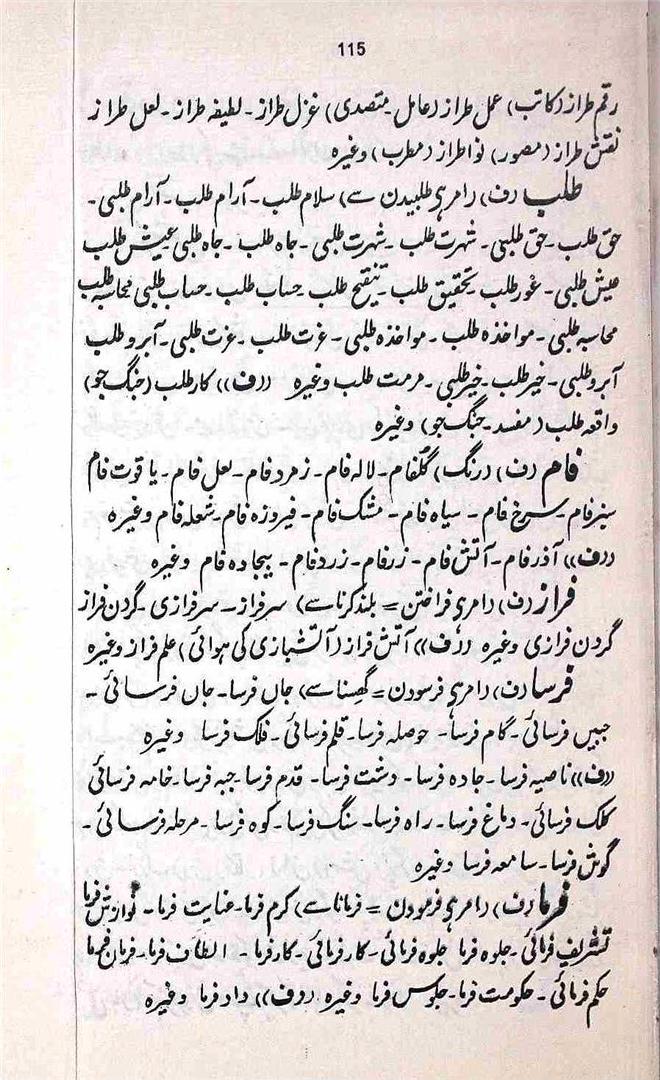 115
رقم طراز (کاتب) عمل طراز (عامل۔ متصدی) غزل طراز۔ لطیفہ طراز۔ لعل طراز
نقش طراز (مصور) نوا طراز (مطرب) وغیرہ
طلب (ف) (امر ہے طلبیدن سے) سلام طلب۔ آرام طلب۔ آرام طلبی۔
حق طلب۔ حق طلبی۔ شہرت طلب۔ شہرت طلبی۔ جاہ طلب۔ جاہ طلبی عیش طلب
عیش طلبی۔ غور طلب۔ تحقیق طلب۔ تنقیح طلب۔ حساب طلب۔ حساب طلبی محاسبہ طلب
محاسبہ طلبی۔ مواخذہ طلب۔ مواخذہ طلبی۔ عزت طلب۔ عزت طلبی۔ آبرو طلب
آبرو طلبی۔ خیر طلب۔ خیر طلبی۔ مرمت طلب وغیرہ ((ف)) کار طلب (جنگ جو)
واقعہ طلب (مفسد۔ جنگ جو) وغیرہ
فام (ف) (رنگ) گلفام۔ لالہ فام۔ زمرد فام۔ لعل فام۔ یاقوت فام
سبز فام۔ سرخ فام۔ سیاہ فام۔ مشک فام۔ فیروزہ فام۔ شعلہ فام وغیرہ
((ف)) آذر فام۔ آتش فام۔ زر فام۔ زرد فام۔ بیجادہ فام وغیرہ
فراز (ف) (امر ہے فراختن = بلند کرنا سے) سرفراز۔ سرفرازی۔ گردن فراز
گردن فرازی وغیرہ ((ف)) آتش فراز (آتشبازی کی ہوائی) علم فراز وغیرہ
فرسا (ف) (امر ہے فرسودن = گھسنا سے) جاں فرسا۔ جاں فرسائی۔
جبیں فرسائی۔ گام فرسا۔ حوصلہ فرسا۔ قلم فرسائی۔ فلک فرسا وغیرہ
((ف)) ناصیہ فرسا۔ جادہ فرسا۔ دشت فرسا۔ قدم فرسا۔ جبہ فرسا۔ خامہ فرسائی
کلک فرسائی۔ دماغ فرسا۔ راہ فرسا۔ سنگ فرسا۔ کوہ فرسا۔ مرحلہ فرسائی۔
گوش فرسا۔ سامعہ فرسا وغیرہ
فرما (ف) (امر ہے فرمودن = فرمانا سے) کرم فرما۔ عنایت فرما۔ نوازش فرما
تشریف فرمائی۔ جلوہ فرما جلوہ فرمائی۔ کار فرمائی۔ کار فرما۔ الطاف فرما۔ فرمان فرما
حکم فرمائی۔ حکومت فرما۔ جلوس فرما وغیرہ ((ف)) داد فرما وغیرہ